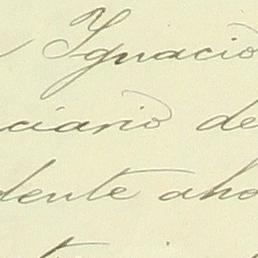 Ignacio
ciario de
dente aho